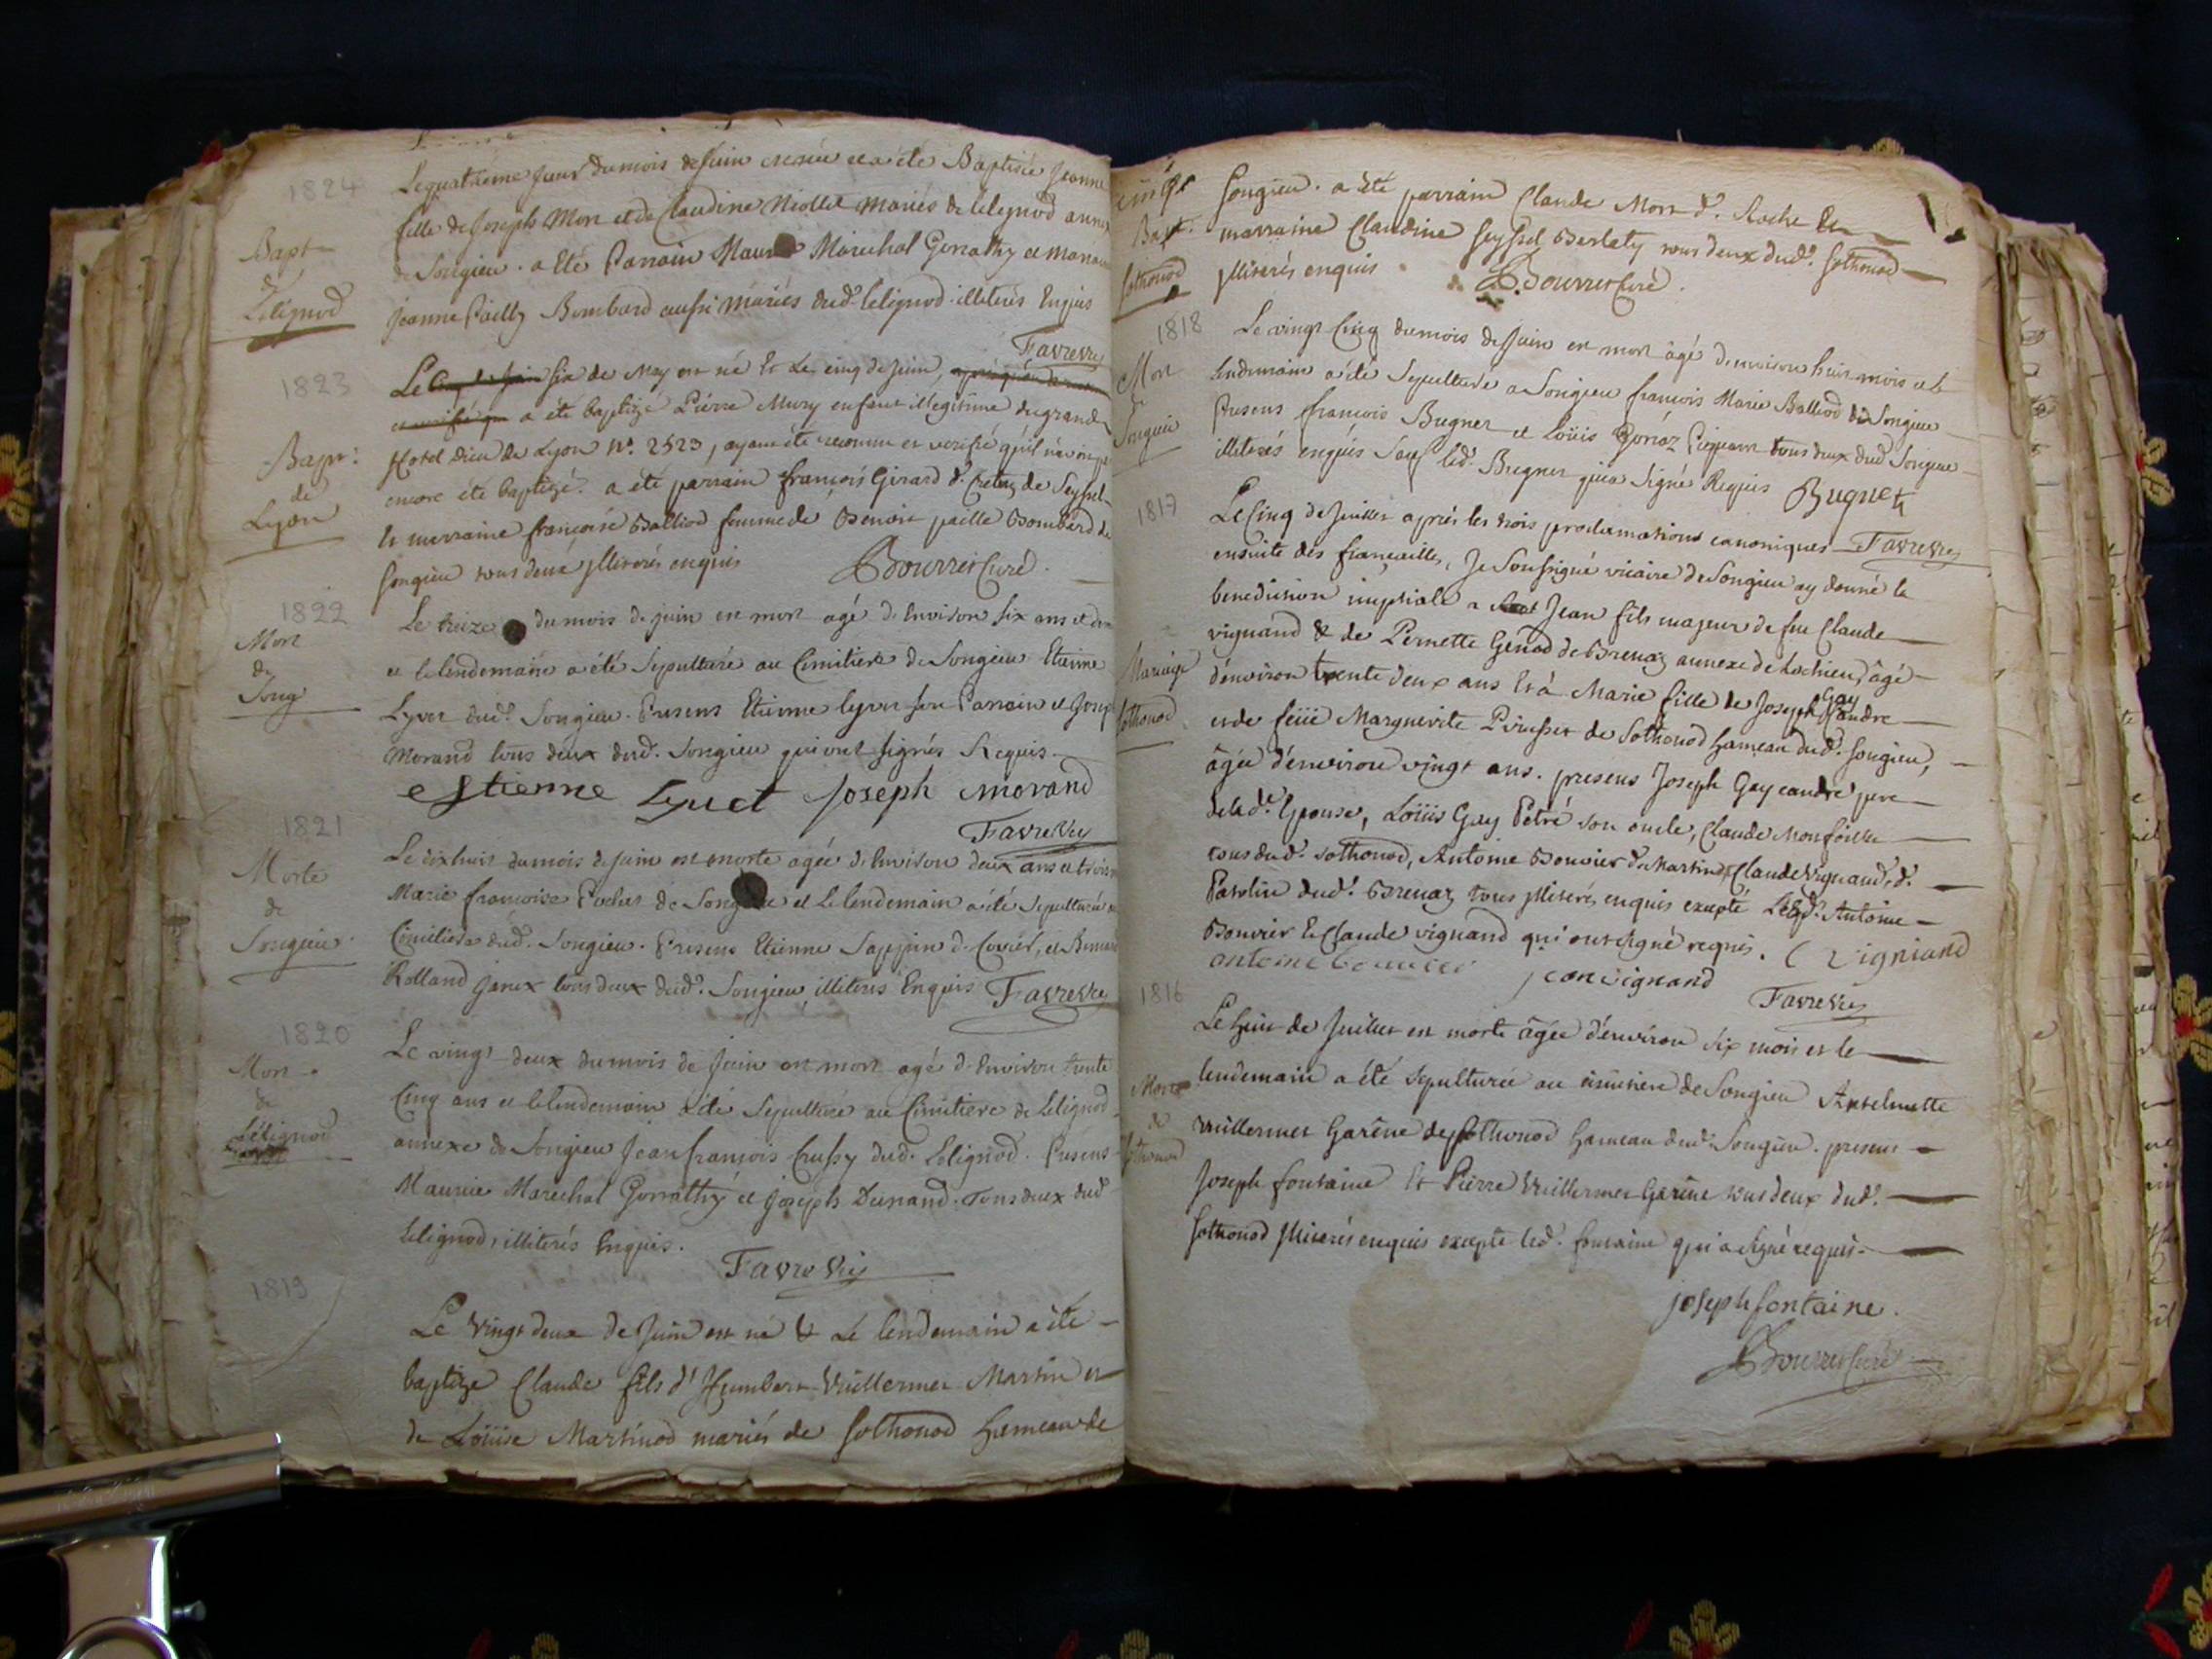 1824
Bapt
de
Lilignod
Le quatrieme jour du mois de Juin est née et a été Baptisée Jeanne
fille de Joseph Mon et de Claudine Niollet mariés de Lilignod annexe
de Songieu. a Eté Parrain Maurice Marechal Gorrathy et
Jeanne Pailly Bombard aussi mariés dud. Lilignod illiterés Enquis
Favre Vic
1823
Bapt:
de
Lyon
Le six de May est né Et Le cinq de Juin,
a été baptizé Pierre Mury enfant illegitime du grand
Hotel Dieu de Lyon No. 2523, ayant été reconnu et verifié qu'il
encore été baptizé. a été parrain françois Girard de Seyssel
Et marraine françoise Balliod femme de Benoit paille Bombard de
Songieu tous deux Illiterés enquis Bourret Curé.
1822
Mort
de
Song
Le treize du mois de juin est mort agé d'Environ six ans et
et le lendemain a été Sepulturé au Cimitiere de Songieu Etienne
Lyvet dud. Songieu. Presens Etienne lyvet son Parrain et Joseph
Morand tous deux dud. Songieu qui ont signés Requis
estienne Lyvet Joseph morand
Favre Vic
1821
Morte
de
Songieu
Le dixhuit du mois de juin est morte agée d'Environ deux ans et trois
Marie francoise Pochet de Songieu et le lendemain a été Sepulturée au
Cimitiere dud. Songieu. Presens Etienne Sappin d. Cuvier, et
Rolland Janex tous deux dud. Songieu, illiterés Enquis Favre Vic
1820
Mort
de
Lilignod
Le vingt deux du mois de Juin est mort agé d'Environ trente
Cinq ans et le lendemain a été Sepulturé au Cimitiere de Lilignod
annexe de Songieu Jean françois Crussy dud. Lilignod. Presens
Maurice Marechal Gorrathy et Joseph Dunand. Tous deux dud.
Lilignod, illiterés Enquis.
Favre Vic
1819
Le Vingt deux de Juin est né & Le lendemain a été
baptizé Claude fils d'Humbert Vuillermet Martin et
de Loüise Martinod mariés de Sothonod Hameau de
Bapt.
Sothonod
Songieu. a été parrain Claude Mon d. Roche Et
marraine Claudine Seyssel Berlaty tous deux dud. Sothonod
Illiterés enquis Bourret Curé.
1818
Mort
de
Songieu
Le vingt Cinq du mois de Juin est mort âgé d'environ huit mois et le
lendemain a été Sepulturé a Songieu françois Marie Balliod de Songieu
Presens françois Bugnet et Loüis Gorraz tous deux dud Songieu
illiterés enquis Sauf led. Bugnet qui a signé Requis Bugnet
Favre Vic
1817
Mariage
Sothonod
Le Cinq de Juillet après les trois proclamations canoniques
ensuite des fiançailles, Je Soussigné vicaire de Songieu ay donné la
benediction nuptiale a Jean fils majeur de feu Claude
vignand & de Pernette Genod de Brenaz annexe de Lochieu, âgé
d'environ trente deux ans Et à Marie fille de Joseph Gay candre
et de feüe Marguerite Prusset de Sothonod hameau dud. Songieu,
âgée d'environ vingt ans. presens Joseph Gay candre pere
de lad. Epouse, Loüis Gay Pétré son oncle, Claude Monfoiste
tous dud. Sothonod, Antoine Bouvier d. Martin, Claude Vignand, d.
Patolin dud. Brenaz tous Illiterés enquis excepté Led. Antoine
Bouvier & Claude vignand qui ont signé requis. C Vigniand
antoine bouvier jean vignand
Favre Vic
1816
Morte
de
Sothonod
Le huit de Juillet est morte âgée d'environ six mois et le
lendemain a été sepulturée au cimitiere de Songieu Antelmette
Vuillermet Garine de Sothonod hameau dud. Songieu. presens
Joseph fontaine Et Pierre Vuillermet Garine tous deux dud.
Sothonod Illiterés enquis excepté led. fontaine qui a signé requis
joseph fontaine.
Bourret Curé